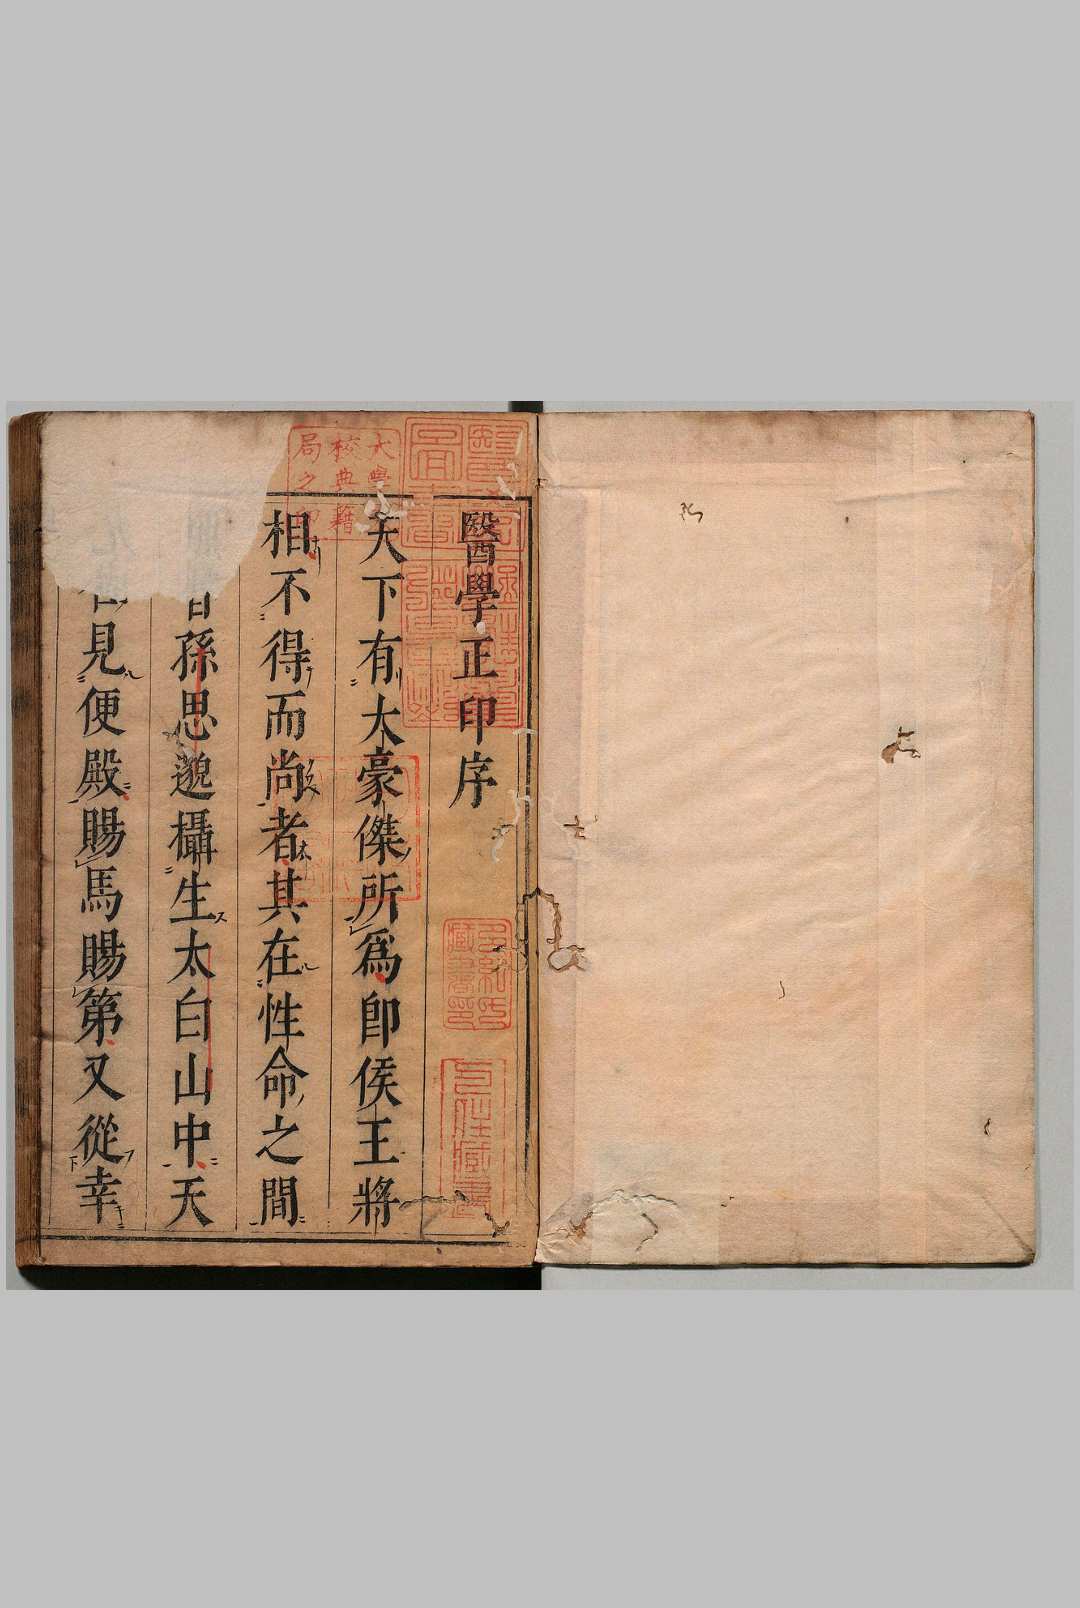 醫學正印序
天下有大豪傑所爲卽侯王將
相不得而尚者其在性命之間
昔孫思邈攝生太白山中天
見便殿賜馬賜第又從幸
大學
校典籍
局之印